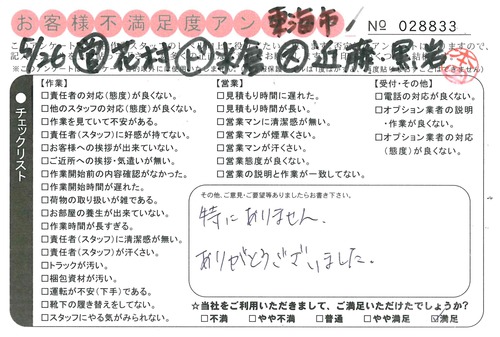 お客様不満足度アン
東海市
No 028833
5/26 花村 近藤 黒岩
チェックリスト
【作業】
□責任者の対応(態度)が良くない。
□他のスタッフの対応(態度)が良くない。
□作業を見ていて不安がある。
□責任者(スタッフ)に好感が持てない。
□お客様への挨拶が出来ていない。
□ご近所への挨拶・気遣いが無い。
□作業開始前の内容確認がなかった。
□作業開始時間が遅れた。
□荷物の取り扱いが雑である。
□お部屋の養生が出来ていない。
□作業時間が長すぎる。
□責任者(スタッフ)に清潔感が無い。
□責任者(スタッフ)が汗くさい。
□トラックが汚い。
□梱包資材が汚い。
□運転が不安(下手)である。
□靴下の履き替えをしてない。
□スタッフにやる気がみられない。
【営業】
□見積もり時間に遅れた。
□見積もり時間が長い。
□営業マンに清潔感が無い。
□営業マンが煙草くさい。
□営業マンが汗くさい。
□営業態度が良くない。
□営業の説明と作業が一致してない。
【受付・その他】
□電話の対応が良くない。
□オプション業者の説明
・作業が良くない。
□オプション業者の対応
(態度)が良くない。
その他、ご意見・ご要望等ありましたらお書き下さい。
特にありません。
ありがとうございました。
☆当社をご利用いただきまして、ご満足いただけたでしょうか?
□不満 □やや不満 □普通 □やや満足 ☑満足